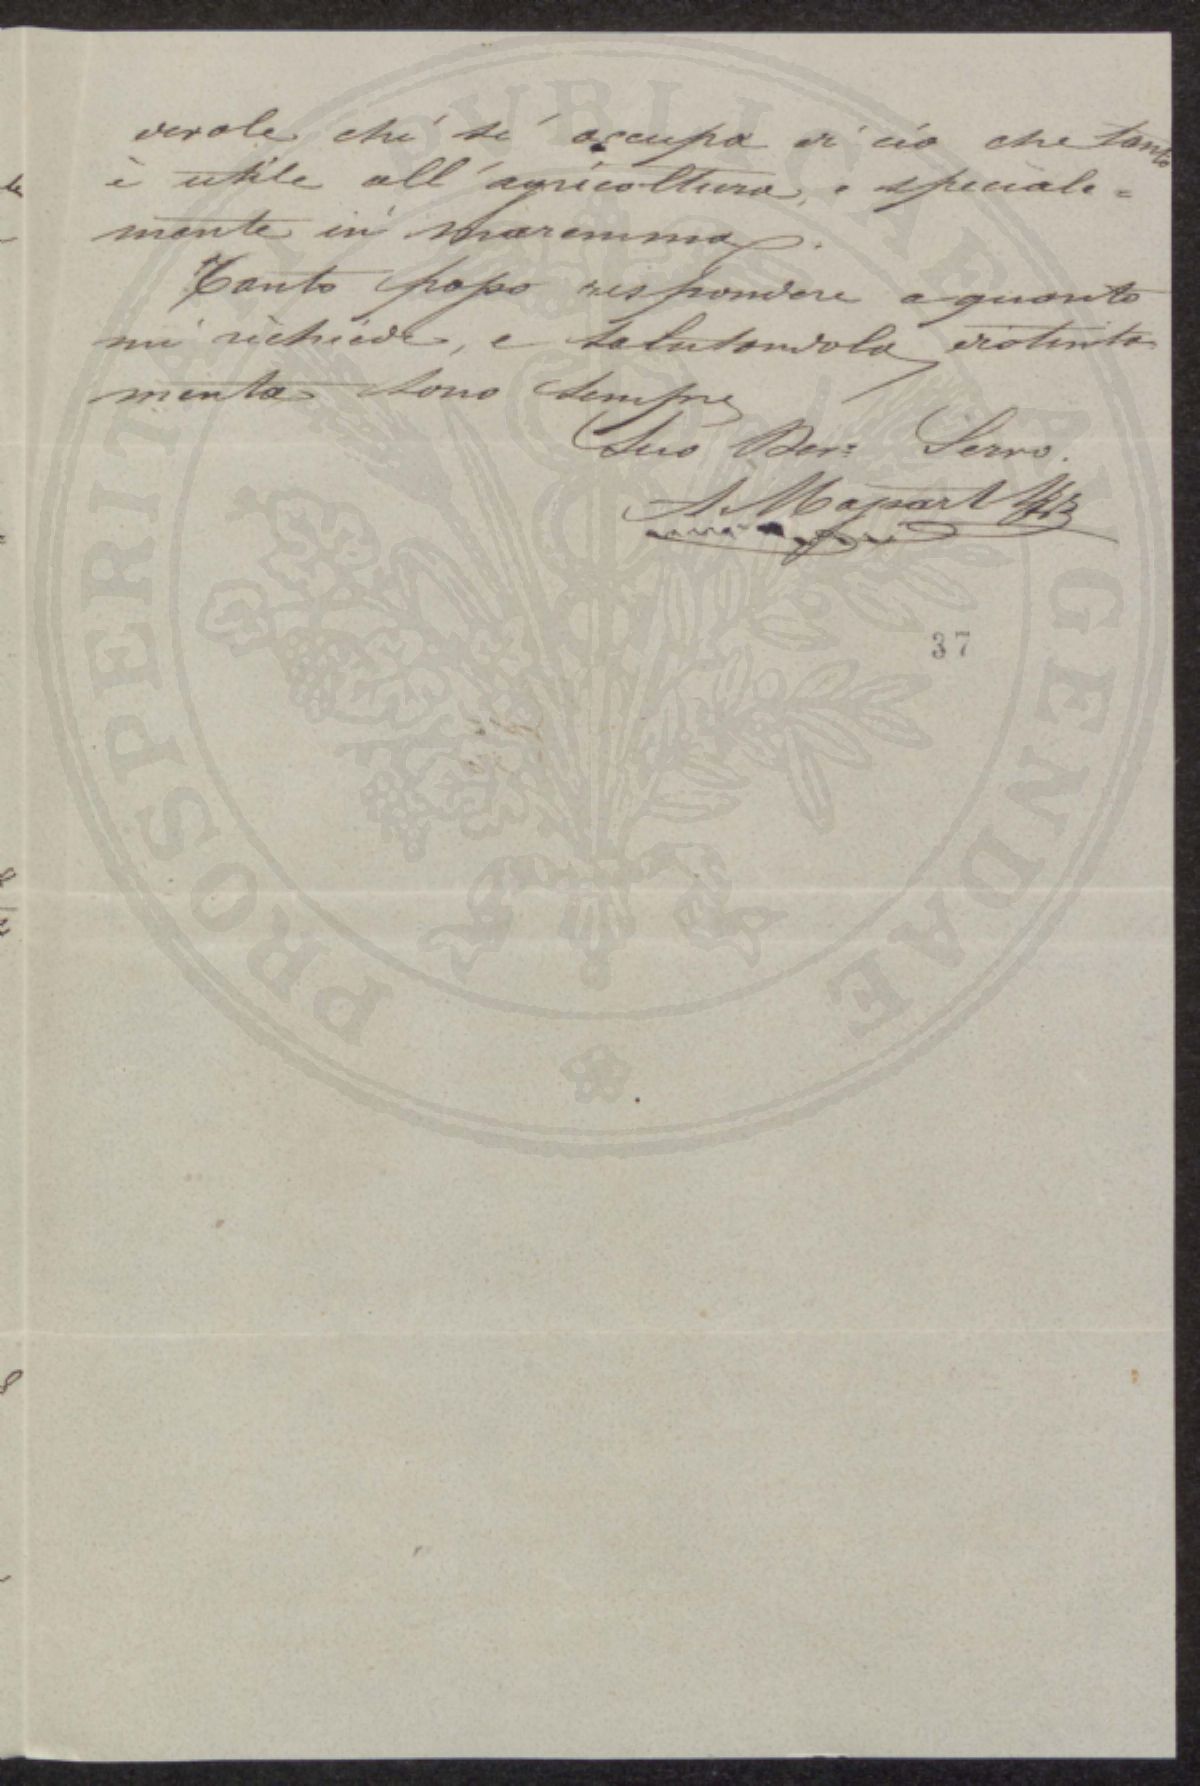 devole chi si occupa di ciò che tanto
è utile all'agricoltura, e speciale=
mente in maremma.
Tanto posso rispondere a quanto
mi richiede, e salutandola distinta
mente sono sempre
Suo Dev: Servo.
A. Massart
37
PROSPERITATI PVBLICAE AVGENDAE